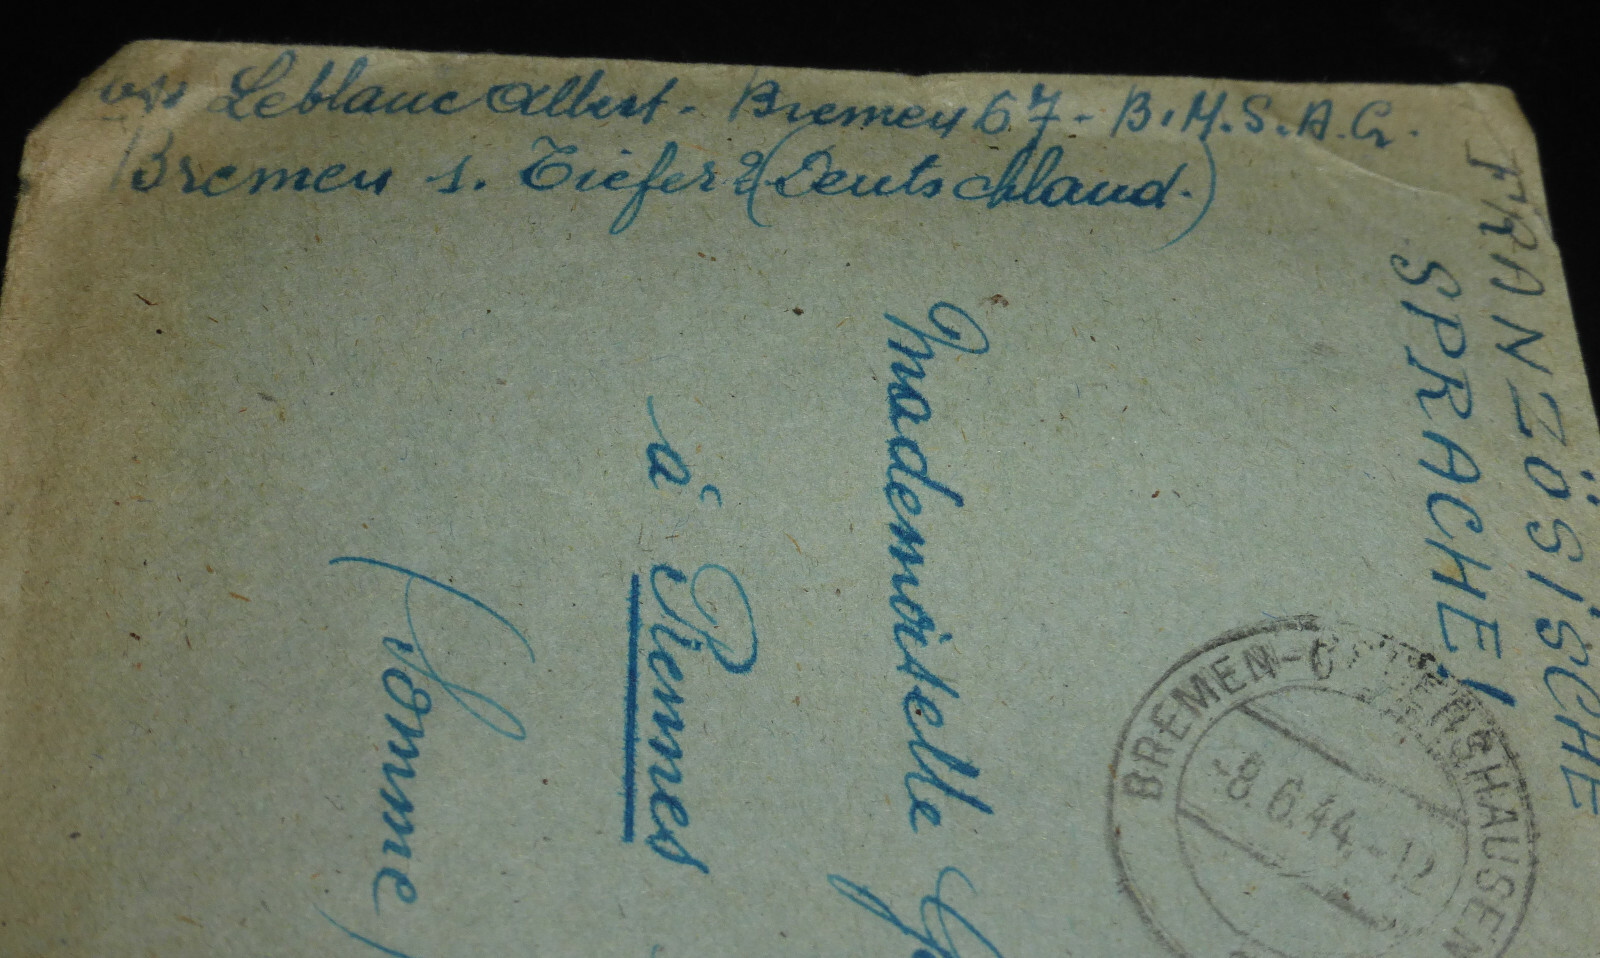 Leblanc Albert - Bremen 67 - B.M.S.A.G.
Bremen 1. Tiefer 2 (Deutschland.)
FRANZÖSISCHE
SPRACHE!
Mademoiselle
à Piennes
(Somme)
BREMEN-OSLEBSHAUSEN
-8.6.44.-12